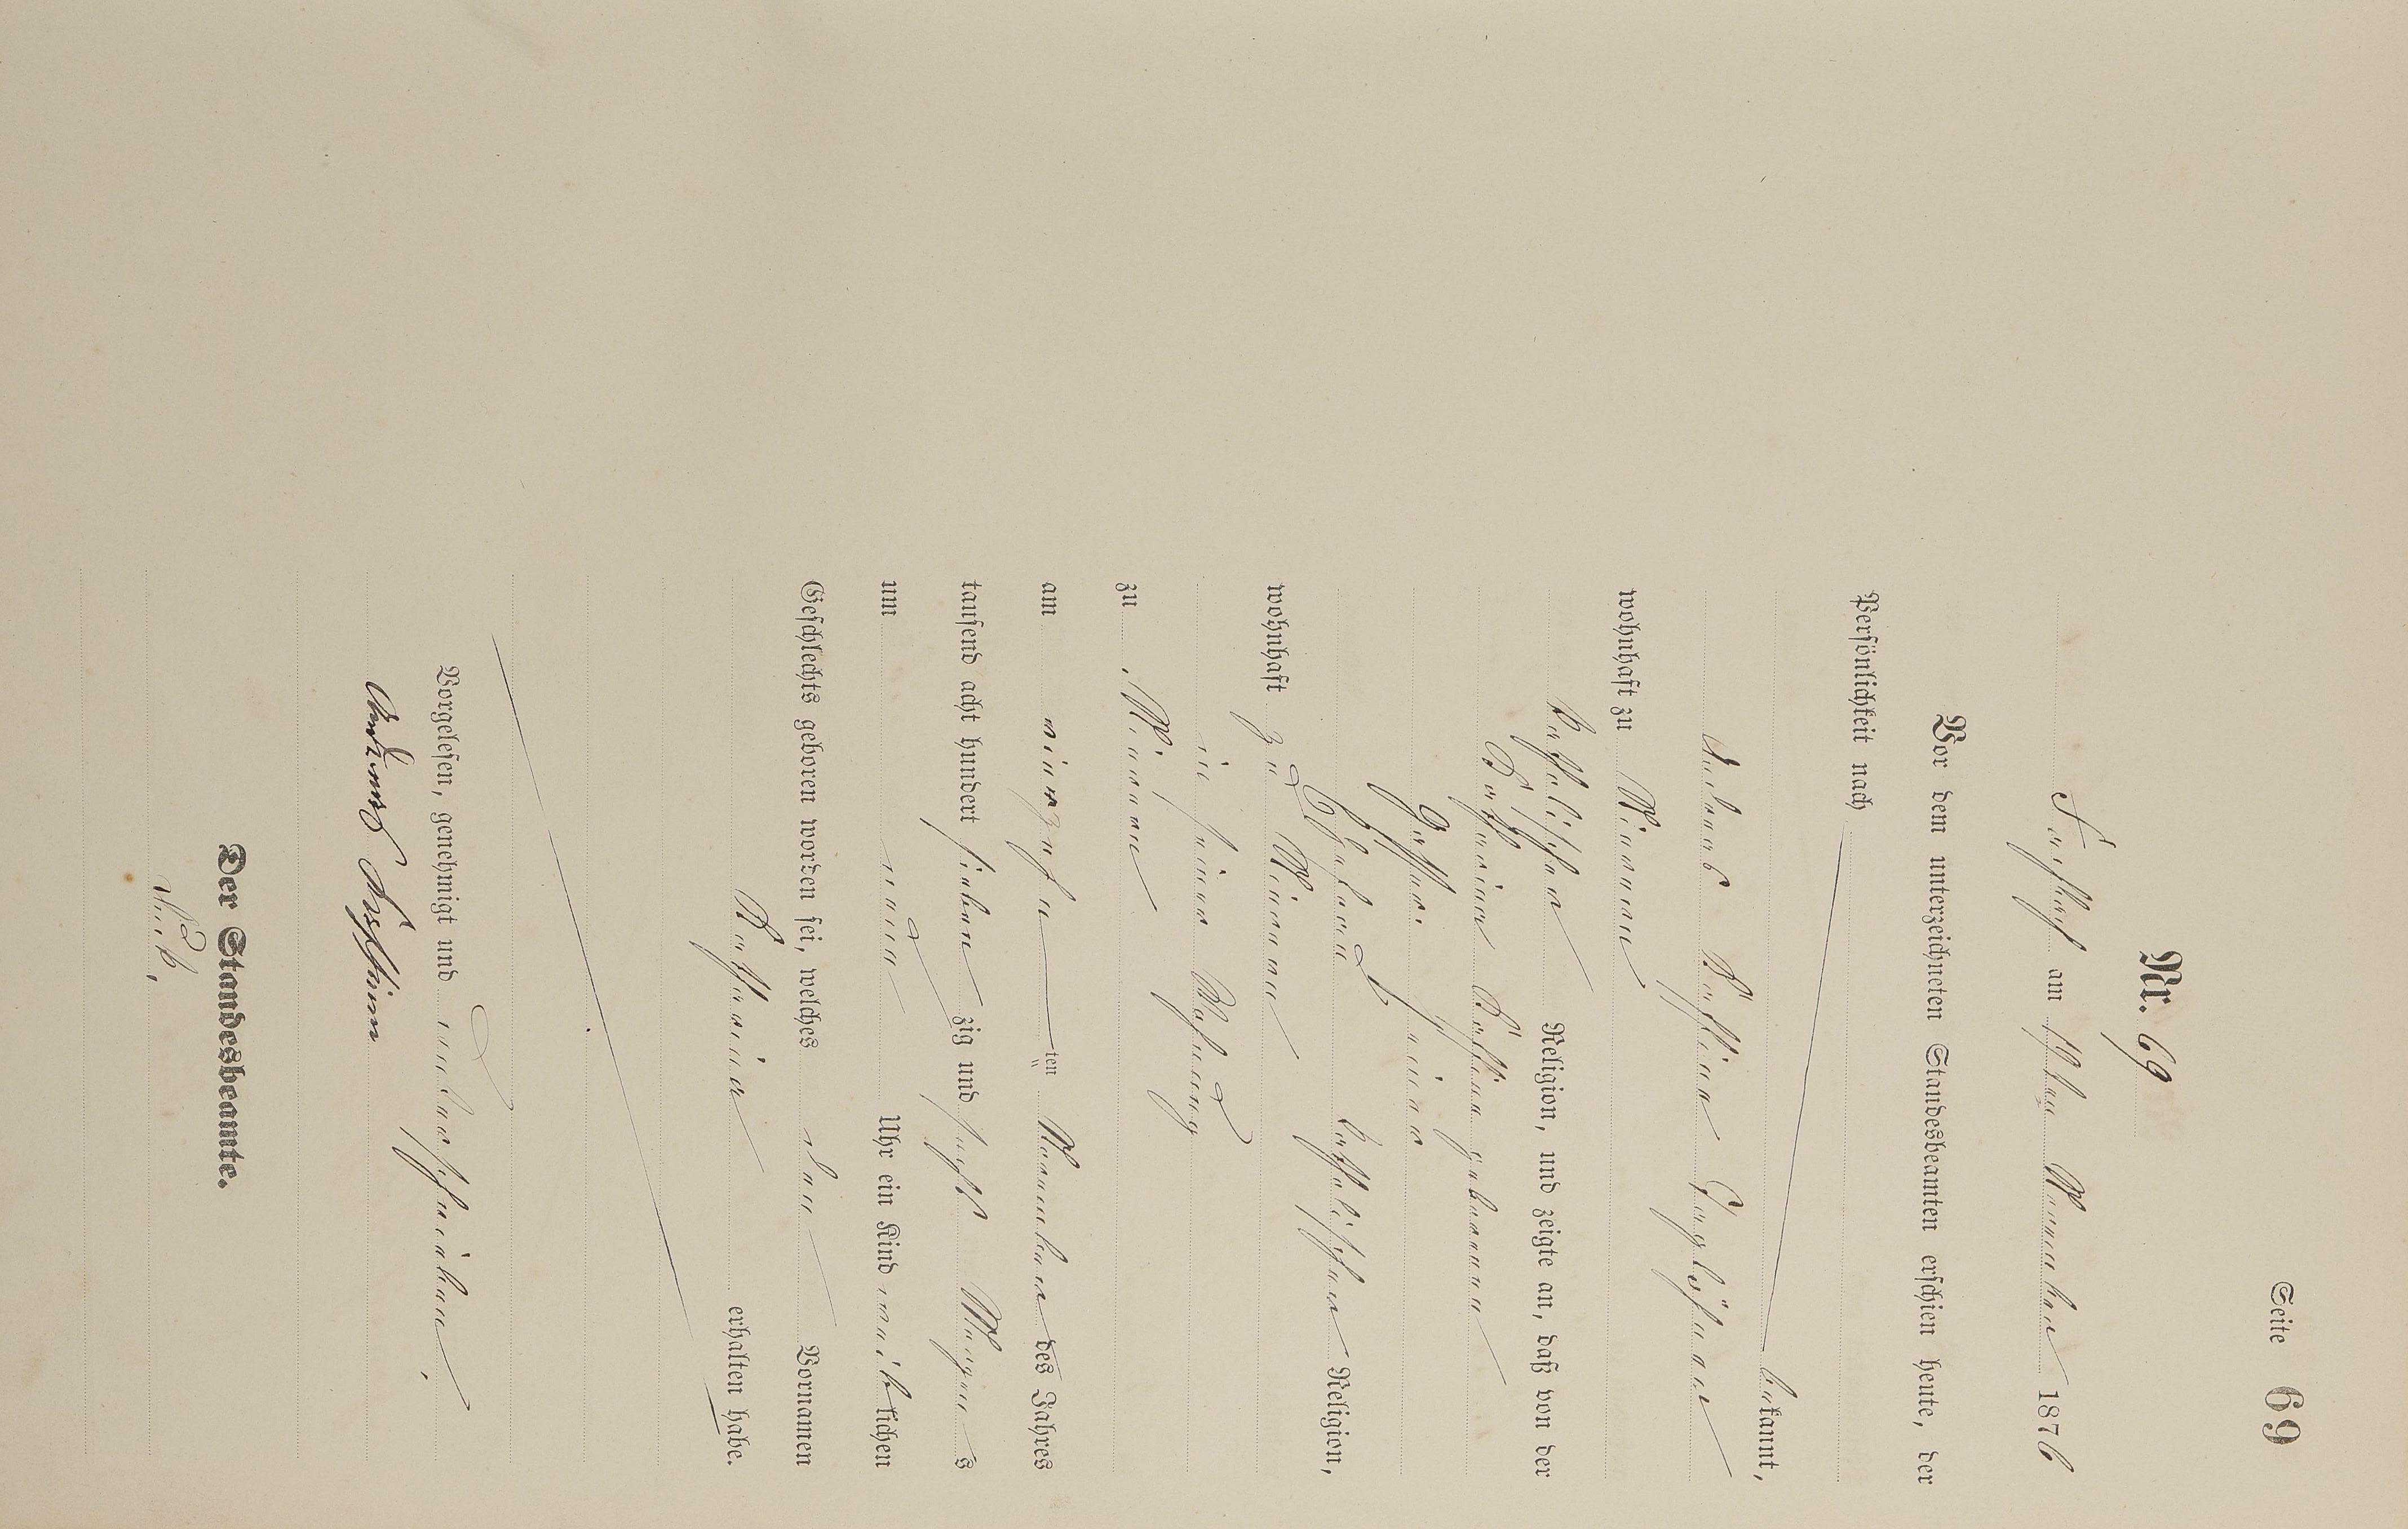 Seite 69
Nr. 69
am November 1876
Vor dem unterzeichneten Standesbeamten erschien heute, der
Persönlichkeit nach
bekannt,
Andreas
wohnhaft zu
katholischer Religion, und zeigte an, daß von der
Catharina geborenen
seiner
Ehefrau katholischer Religion,
wohnhaft zu
in seiner Wohnung
zu
am vierzehnten November des Jahres
tausend acht hundert sieben zig und sechs Morgens
um neun Uhr ein Kind weiblichen
Geschlechts geboren worden sei, welches den Vornamen
Katharina erhalten habe.
Vorgelesen, genehmigt und unterschrieben,
Andreas
Der Standesbeamte.